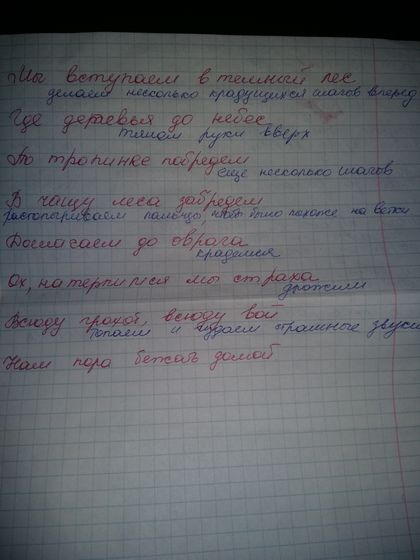 Мы вступаем в темный лес
делаем несколько крадущихся шагов вперед
Где деревья до небес
тянем руки вверх
По тропинке побредем
еще несколько шагов
В чащу леса забредем
растопыриваем пальцы, чтобы было похоже на ветки
Дошагаем до оврага
крадемся
Ох, натерпимся мы страха
дрожим
Всюду грохот, всюду вой
топаем и издаем страшные звуки
Нам пора бежать домой